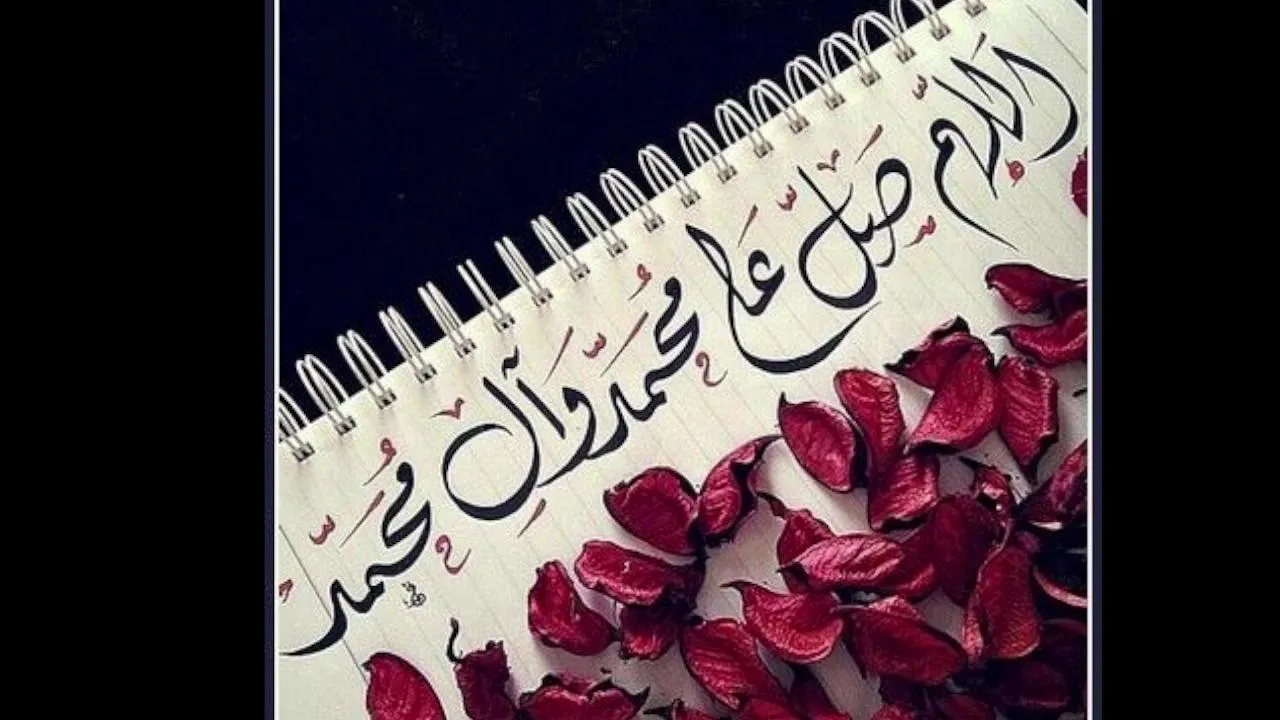 اللهم صل علی محمد وآل محمد